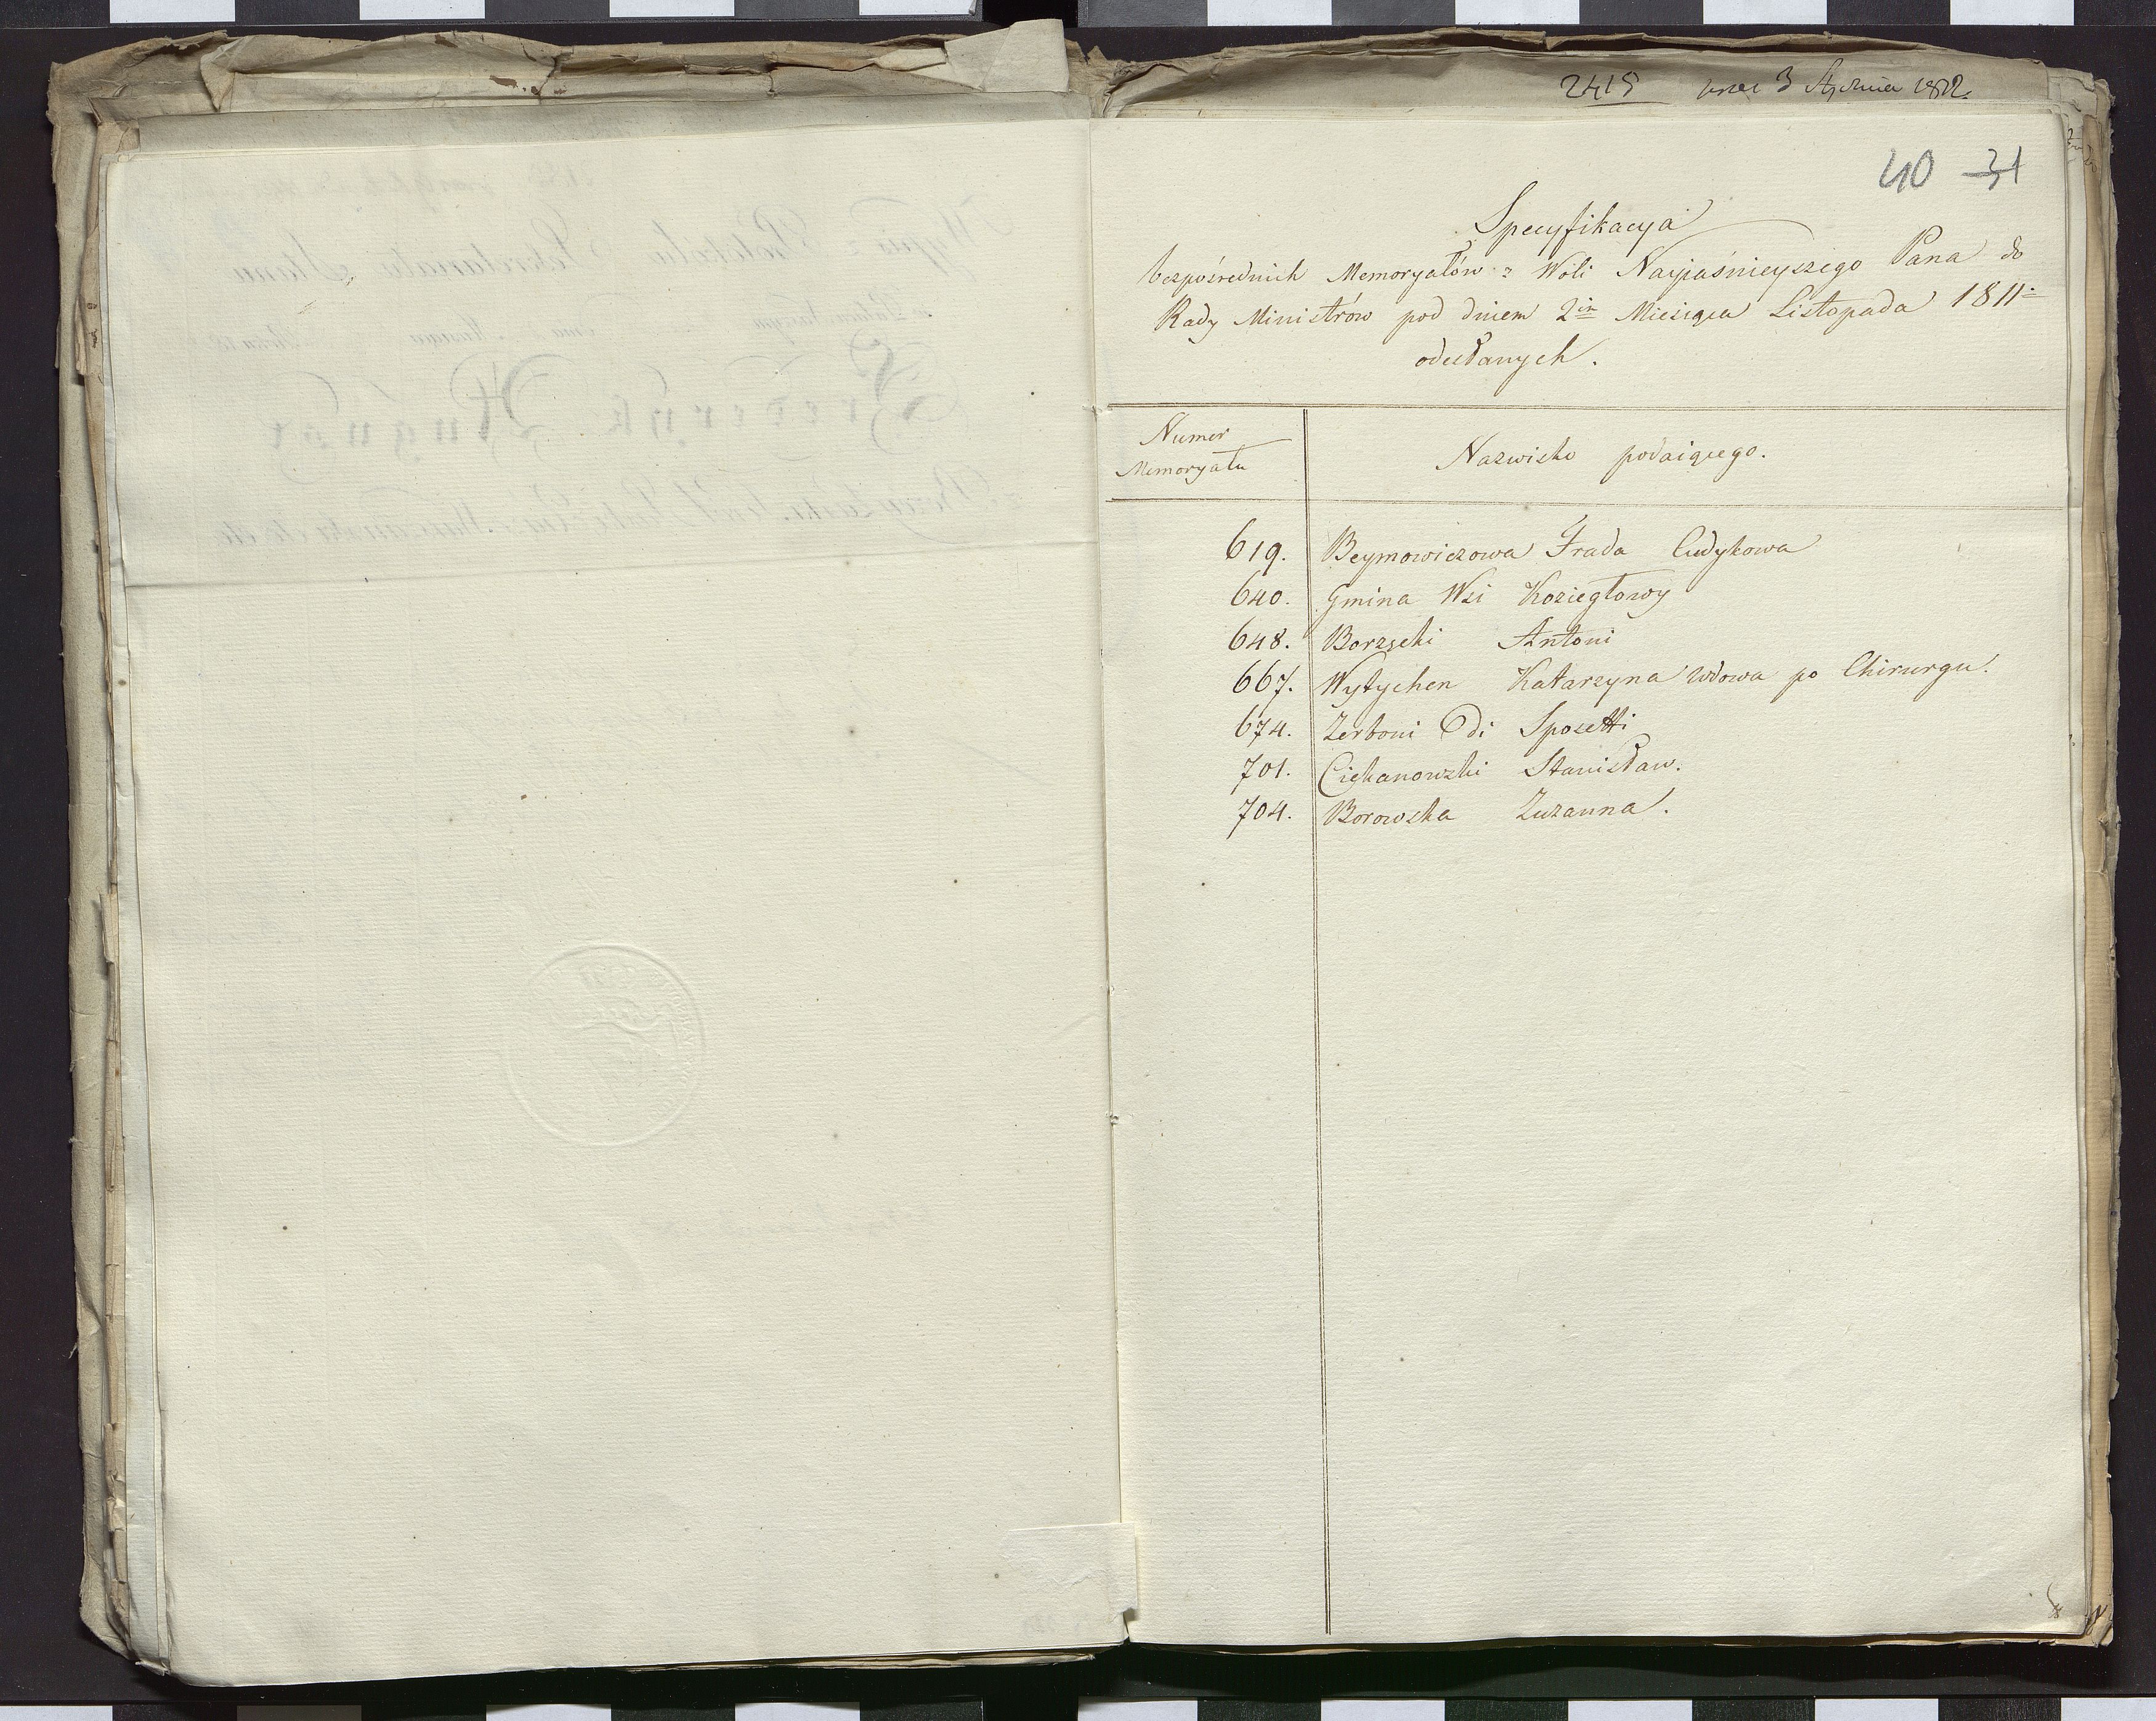 2415 3 Stycznia 1812.
40 31
Specyfikacya
bezpośrednich Memoryałów z Woli Nayjaśnieyszego Pana do
Rady Ministrów pod dniem 2im Miesiąca Listopada 1811.
odesłanych.
Numer
Memoryału
Nazwisko podaiącego.
619. Beymowiczowa Frada Cudykowa
640. Gmina Wsi Koziegłowy
648. Borzęcki Antoni
667. Wytychen Katarzyna wdowa po Chirurgu.
674. Zerboni Di Sposetti
701. Ciekanowski Stanisław.
704. Borowska Zuzanna.